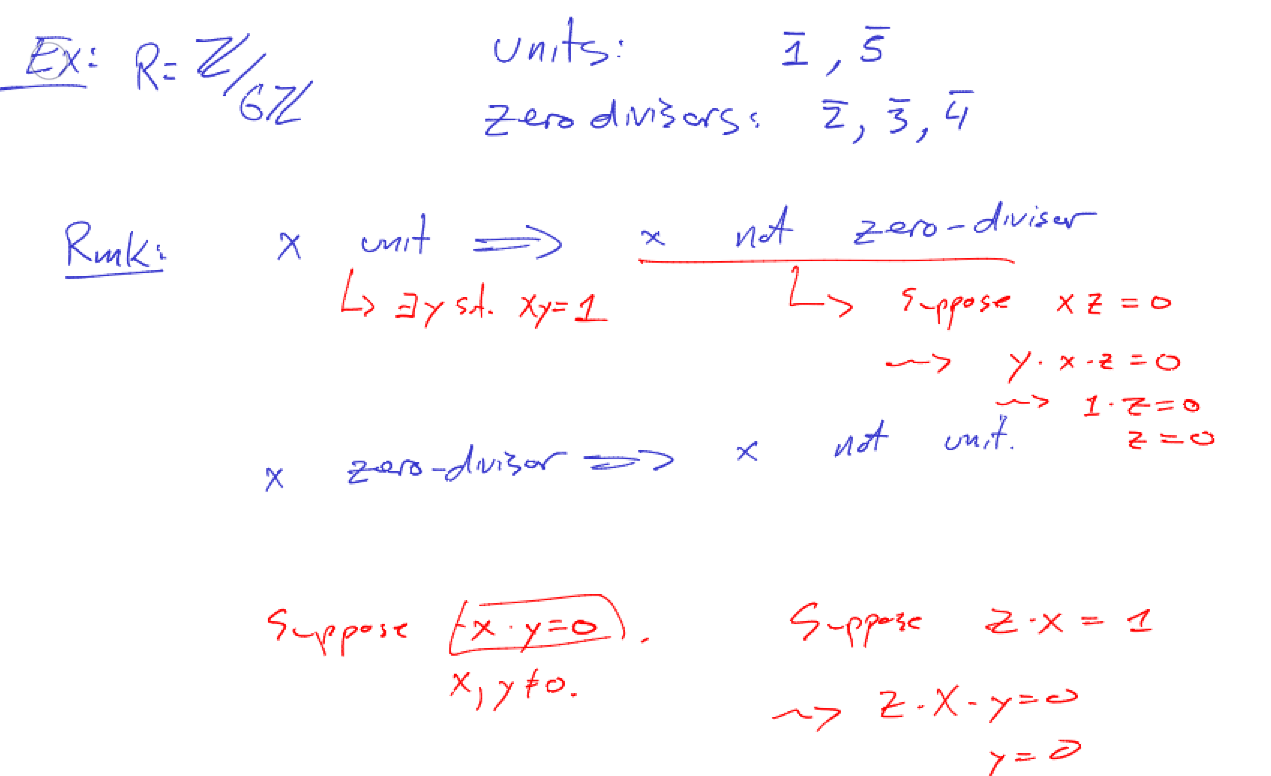 Ex: R = ℤ/6ℤ units: 1̄, 5̄
zero divisors: 2̄, 3̄, 4̄
Rmk: x unit ⟹ x not zero-divisor
↳ ∃y s.t. xy=1 ↳ Suppose xz=0
⇝ y·x·z=0
⇝ 1·z=0
z=0
x zero-divisor ⟹ x not unit.
Suppose x·y=0. Suppose z·x=1
x, y≠0. ⇝ z·x·y=0
y=0